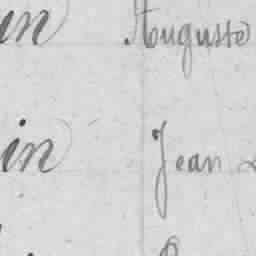 in Auguste
in Jean